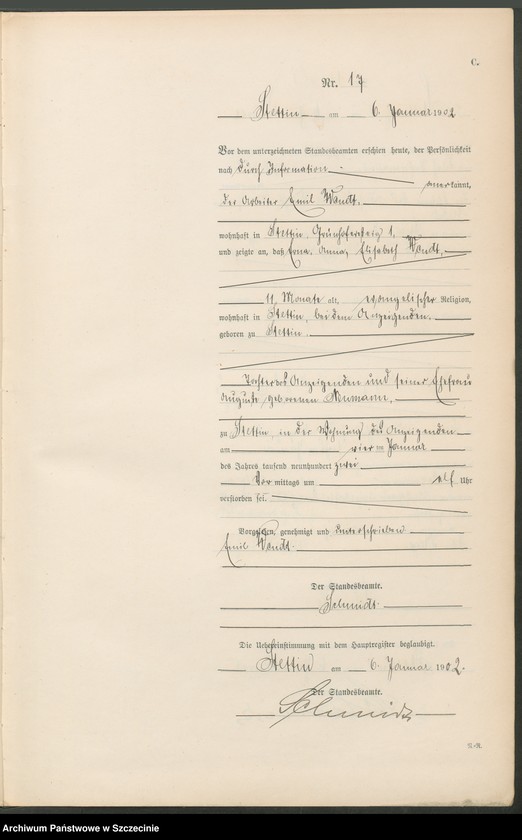 C.
Nr. 17
Stettin am 6. Januar 1902
Vor dem unterzeichneten Standesbeamten erschien heute, der Persönlichkeit
nach durch Information
anerkannt,
der Arbeiter Emil Wendt,
wohnhaft in Stettin, Grünhofersteig 1,
und zeigte an, daß Erna, Anna, Elisabeth Wendt,
11 Monate alt, evangelischer Religion,
wohnhaft in Stettin, bei dem Anzeigenden,
geboren zu Stettin,
Tochter des Anzeigenden und seiner Ehefrau
Auguste geborenen
zu Stettin, in der Wohnung des Anzeigenden
am vier ten Januar
des Jahres tausend neunhundert zwei
Vor mittags um elf Uhr
verstorben sei.
Vorgelesen, genehmigt und unterschrieben
Emil Wendt.
Der Standesbeamte.
Schmidt.
Die Uebereinstimmung mit dem Hauptregister beglaubigt.
Stettin am 6. Januar 1902.
Der Standesbeamte.
Schmidt
Archiwum Państwowe w Szczecinie